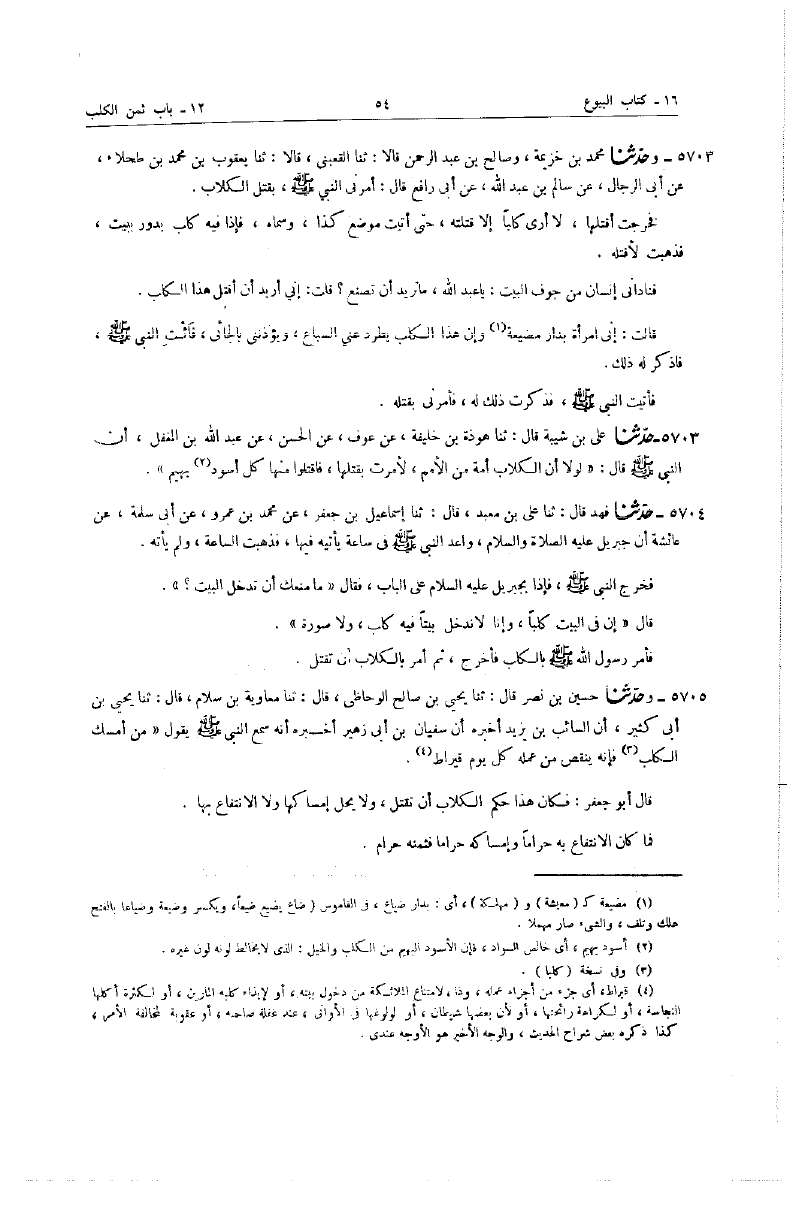 ١٦ - كتاب البيوع ٥٤ ١٢ - باب ثمن الكلب
٥٧٠٣ - وحدثنا محمد بن خزيمة ، وصالح بن عبد الرحمن قالا : ثنا القعنبي ، قالا : ثنا يعقوب بن محمد بن طحلاء ،
عن أبى الرجال ، عن سالم بن عبد الله ، عن أبى رافع قال : أمرنى النبي ﷺ ، بقتل الكلاب .
فخرجت أقتلها ، لا أرى كلباً إلا قتلته ، حتى أتيت موضع كذا ، وسماه ، فإذا فيه كلب يدور ببيت ،
فذهبت لأقتله .
فنادانى إنسان من جوف البيت : ياعبد الله ، ماتريد أن تصنع ؟ قلت: إني أريد أن أقتل هذا الكلب .
قالت : إنى امرأة بدار مضيعة(١) وإن هذا الكلب يطرد عني السباع ، ويؤذننى بالجائى ، فَأْتِ النبي ﷺ ،
فاذكر له ذلك .
فأتيت النبي ﷺ ، فذكرت ذلك له ، فأمرنى بقتله .
٥٧٠٣ - حدثنا على بن شيبة قال : ثنا هوذة بن خليفة ، عن عوف ، عن الحسن ، عن عبد الله بن المغفل ، أن
النبي ﷺ قال : « لولا أن الكلاب أمة من الأمم ، لأمرت بقتلها ، فاقتلوا منها كل أسود(٢) بهيم » .
٥٧٠٤ - حدثنا فهد قال : ثنا على بن معبد ، قال : ثنا إسماعيل بن جعفر ، عن محمد بن عمرو ، عن أبى سلمة ، عن
عائشة أن جبريل عليه الصلاة والسلام ، واعد النبي ﷺ فى ساعة يأتيه فيها ، فذهبت الساعة ، ولم يأته .
فخرج النبي ﷺ ، فإذا بجبريل عليه السلام على الباب ، فقال « ما منعك أن تدخل البيت ؟ » .
قال « إن فى البيت كلباً ، وإنا لاندخل بيتاً فيه كلب ، ولا صورة » .
فأمر رسول الله ﷺ بالكلب فأخرج ، ثم أمر بالكلاب أن تقتل .
٥٧٠٥ - وحدثنا حسين بن نصر قال : ثنا يحيى بن صالح الوحاظى ، قال : ثنا معاوية بن سلام ، قال : ثنا يحيى بن
أبى كثير ، أن السائب بن يزيد أخبره أن سفيان بن أبى زهير أخبره أنه سمع النبي ﷺ يقول « من أمسك
الكلب(٣) فإنه ينقص من عمله كل يوم قيراط(٤) .
قال أبو جعفر : فكان هذا حكم الكلاب أن تقتل ، ولا يحل إمساكها ولا الانتفاع بها .
فما كان الانتفاع به حراماً وإمساكه حراما فثمنه حرام .
(١) مضيعة كـ ( معيشة ) و ( مهلكة ) ، أى : بدار ضياع ، فى القاموس ( ضاع يضيع ضيعاً، ويكسر وضيعة وضياعا بالفتح
هلك وتلف ، والشىء صار مهملا .
(٢) أسود بهيم ، أى خالص السواد ، فإن الأسود البهيم من الكلاب والخيل : الذى لايخالط لونه لون غيره .
(٣) وفى نسخة ( كلبا ) .
(٤) قيراط، أى جزء من أجزاء عمله ، وذا ، لامتناع الملائكة من دخول بيته ، أو لإيذاء كلبه المارين ، أو لكثرة أكلها
النجاسة ، أو لكراهة رائحتها ، أو لأن بعضها شيطان ، أو لولوغها فى الأوانى ، عند غفلة صاحبه ، أو عقوبة لمخالفة الأمر ،
كذا ذكره بعض شراح الحديث ، والوجه الأخير هو الأوجه عندى .